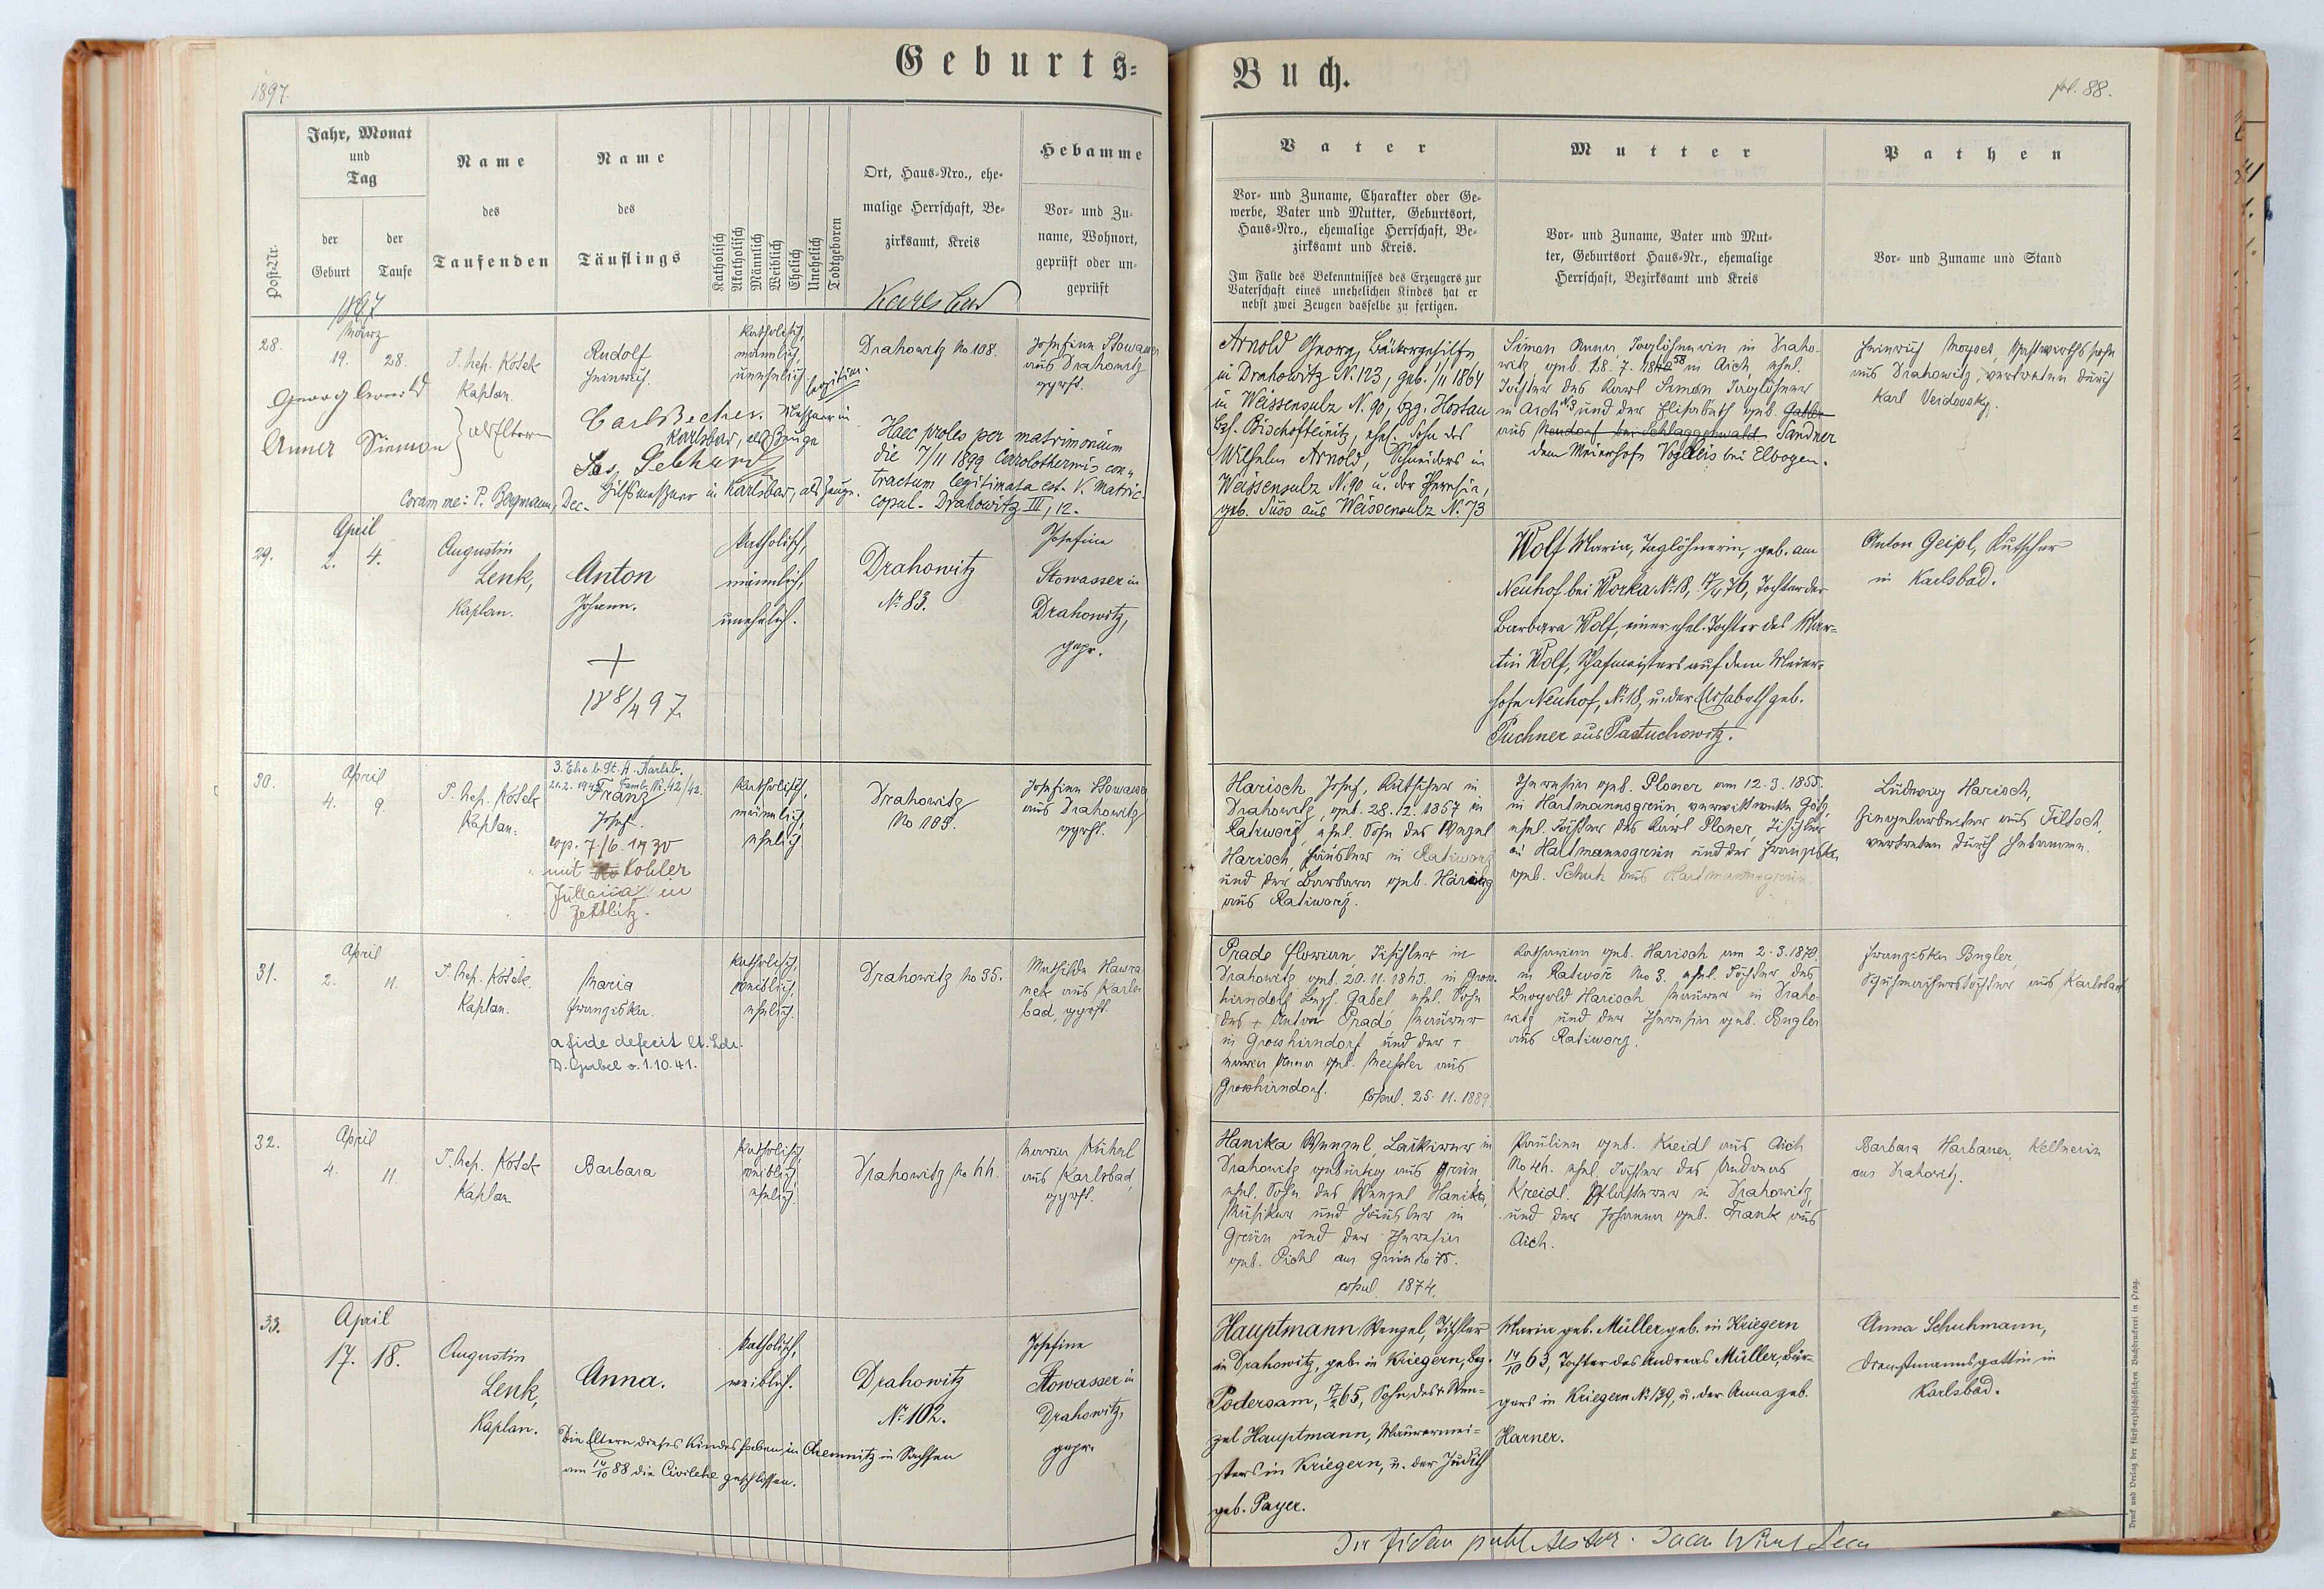 1897.
Geburts=
Post-Nr.
Jahr, Monat
und
Tag
der
Geburt
der
Taufe
Name
des
Taufenden
Name
des
Täuflings
Katholisch
Akatholisch
Männlich
Weiblich
Ehelich
Unehelich
Todtgeboren
Ort, Haus-Nro., ehe-
malige Herrschaft, Be-
zirksamt, Kreis
Karlsbad
Hebamme
Vor- und Zu-
name, Wohnort,
geprüft oder un-
geprüft
1897
28.
März
19. 28.
J. Nep. Kosek
Kaplan.
Rudolf
Heinrich.
katholisch,
männlich,
unehelich
legitim.
Drahowitz No 108.
Josefine Stowasser
aus Drahowitz
gprft.
Georg Arnold
Anna Simon } als Eltern
Carl Becher. Meßner in
Karlsbad, als Zeuge
Gebhard
Hilfsmeßner in Karlsbad, als Zeuge.
Coram me: P. Bergmann, Dec.
Haec proles per matrimonium
die 7/11 1899 Carolothermis con„
tractum legitimata est. V. Matric.
copul. Drahowitz III, 12.
29.
April
2. 4.
Augustin
Lenk,
Kaplan.
Anton
Johann.
+
18 8/4 97.
katholisch,
männlich,
unehelich.
Drahowitz
No 83.
Josefine
Stowasser in
Drahowitz,
gepr.
30.
April
4. 9.
J. Nep. Kosek
Kaplan.
3. Ehe b. St. A. Karlsb.
21.2. 1942 Famb. Nr. 42/42.
Franz
Josef.
cop. 7./6. 1930
mit Kohler
Juliana in
Zettlitz.
katholisch,
männlich,
ehelich
Drahowitz
No 105.
Josefine Stowasser
aus Drahowitz
gprft.
31.
April
2. 11.
J. Nep. Kosek.
Kaplan.
Maria
Franziska.
a fide defecit lt. Zdr.
D. Gabel v. 1.10.41.
katholisch,
weiblich,
ehelich.
Drahowitz No 35.
Mathilde Hawra-
nek aus Karls-
bad, gprft.
32.
April
4. 11.
J. Nep. Kosek
Kaplan.
Barbara
katholisch,
weiblich,
ehelich.
Drahowitz No 44.
Maria Kühnl
aus Karlsbad,
gprft.
33.
April
17. 18.
Augustin
Lenk,
Kaplan.
Anna.
katholisch,
weiblich.
Drahowitz
No 102.
Josefine
Stowasser in
Drahowitz,
gepr.
Die Eltern dieses Kindes haben in Chemnitz in Sachsen
am 14/10 88 die Civilehe geschlossen.
Buch.
fol. 88.
Vater
Vor- und Zuname, Charakter oder Ge-
werbe, Vater und Mutter, Geburtsort,
Haus-Nro., ehemalige Herrschaft, Be-
zirksamt und Kreis.
Im Falle des Bekenntnisses des Erzeugers zur
Vaterschaft eines unehelichen Kindes hat er
nebst zwei Zeugen dasselbe zu fertigen.
Mutter
Vor- und Zuname, Vater und Mut-
ter, Geburtsort Haus-Nr., ehemalige
Herrschaft, Bezirksamt und Kreis
Pathen
Vor- und Zuname und Stand
Arnold Georg, Bäckergehilfe
in Drahowitz N. 123, geb. 1/11 1864
in Weissensulz N. 90, bzg. Hostau
Bzh. Bischofteinitz, ehel. Sohn des
Wilhelm Arnold, Schneiders in
Weissensulz N. 90 u. der Theresia,
geb. Süss aus Weissensulz N. 73
Simon Anna, Taglöhnerin in Draho-
witz, geb. 28. 7. 1858 in Aich, ehel.
Tochter des Karl Simon Taglöhner
in Aich N3 und der Elisabeth geb. Gabler
aus Neudorf bei Schlaggenwald Sandner
dem Meierhofe Vogelleis bei Elbogen.
Heinrich Moyses, Gastwirthssohn
aus Drahowitz, vertreten durch
Karl Veidovsky.
Wolf Maria, Taglöhnerin, geb. am
Neuhof bei Worka No 18, 17/4 76, Tochter der
Barbara Wolf, einer ehel. Tochter des Mar-
tin Wolf, Schafmeisters auf dem Meier-
hofe Neuhof, No 18, u. der Elisabeth geb.
Puchner aus Pastuchowitz.
Anton Geipl, Kutscher
in Karlsbad.
Harisch Josef, Kutscher in
Drahowitz, geb. 28. 12. 1857 in
Ratiworz ehel. Sohn des Wenzel
Harisch, Häusler in Ratiworz
und der Barbara geb. Häring
aus Ratiworz.
Theresia geb. Ploner am 12. 3. 1855.
in Hartmannsgrün, verwittwete Götz,
ehel. Tochter des Karl Ploner, Tischler
in Hartmannsgrün und der Franziska
geb. Schuh aus Hartmannsgrün.
Ludwig Harisch,
Ziegelarbeiter aus Tiltsch,
vertreten durch Hebamme.
Prade Florian, Tischler in
Drahowitz geb. 20. 11. 1863. in Gross-
hirndorf bzh. Gabel ehel. Sohn
des + Anton Prade Maurer
in Grosshirndorf und der +
Maria Anna geb. Meissler aus
Grosshirndorf. copul. 25. 11. 1889.
Katharina geb. Harisch am 2. 3. 1870.
in Ratiworz No 3. ehel. Tochter des
Leopold Harisch Maurer in Draho-
witz und der Theresia geb. Bugler
aus Ratiworz.
Franziska Bugler,
Schuhmacherstochter aus Karlsbad
Hanika Wenzel, Lackirer in
Drahowitz gebürtig aus Grün
ehel. Sohn des Wenzel Hanika,
Musiker und Häusler in
Grün und der Theresia
geb. Pichl aus Grün No 75.
copul. 1874.
Pauline geb. Kreidl aus Aich
No 44. ehel. Tochter des Andreas
Kreidl. Pflasterer in Drahowitz,
und der Johanna geb. Frank aus
Aich.
Barbara Harbauer, Kellnerin
aus Drahowitz.
Hauptmann Wenzel, Tischler
in Drahowitz, geb. in Kriegern, Bez.
Podersam, 17/2 65, Sohn des + Wen-
zel Hauptmann, Maurermei-
sters in Kriegern, u. der Judith
geb. Payer.
Maria geb. Müller, geb. in Kriegern
14/10 63, Tochter des Andreas Müller, Bür-
gers in Kriegern No 139, u. der Anna geb.
Harner.
Anna Schuhmann,
Dienstmannsgattin in
Karlsbad.
Druck und Verlag der fürsterzbischöflichen Buchdruckerei in Prag.